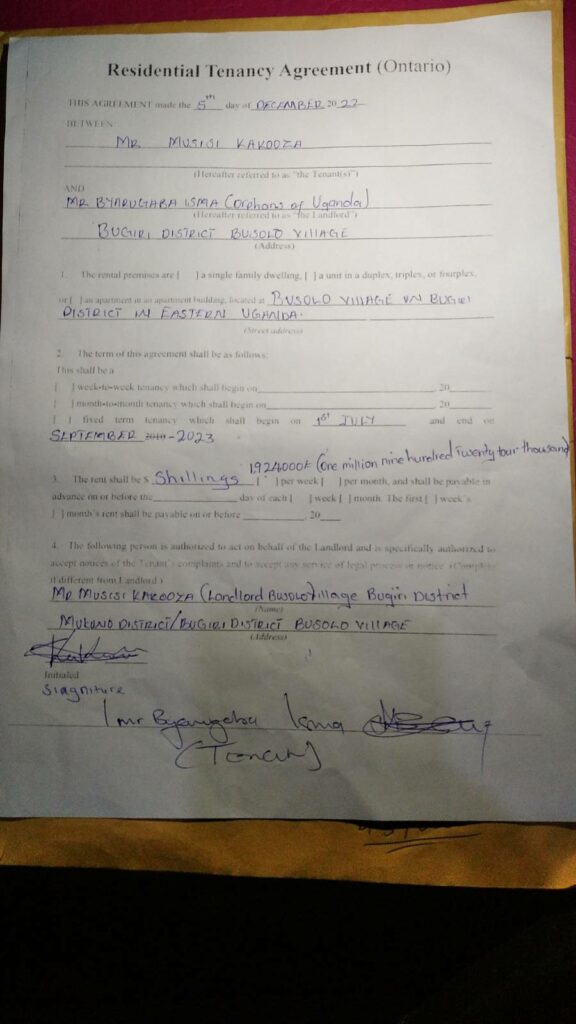 Residential Tenancy Agreement (Ontario)
THIS AGREEMENT made the 5th day of DECEMBER 2022
BETWEEN:
MR. MUSISI KAKOOZA
(Hereafter referred to as "the Tenant(s)")
AND
MR BYARUGABA ISMA (Orphans of Uganda)
(Hereafter referred to as "the Landlord")
BUGIRI DISTRICT BUSOLO VILLAGE
(Address)
1. The rental premises are [ ] a single family dwelling, [ ] a unit in a duplex, triplex, or fourplex,
or [ ] an apartment in an apartment building, located at BUSOLO VILLAGE IN BUGIRI
DISTRICT IN EASTERN UGANDA.
(Street address)
2. The term of this agreement shall be as follows:
This shall be a
[ ] week-to-week tenancy which shall begin on , 20
[ ] month-to-month tenancy which shall begin on , 20
[ ] fixed term tenancy which shall begin on 1st JULY and end on
SEPTEMBER 2019 - 2023
1924000/= (One million nine hundred Twenty four thousand)
3. The rent shall be $ Shillings [ ] per week [ ] per month, and shall be payable in
advance on or before the day of each [ ] week [ ] month. The first [ ] week's
[ ] month's rent shall be payable on or before , 20
4. The following person is authorized to act on behalf of the Landlord and is specifically authorized to
accept notices of the Tenant's complaints and to accept any service of legal process or notice. (Complete
if different from Landlord.)
MR MUSISI KAKOOZA (Landlord Busolo Village Bugiri District
(Name)
MUKONO DISTRICT/BUGIRI DISTRICT BUSOLO VILLAGE
(Address)
Initialed
Siagniture
I mr Byarugaba Isma
(Tenant)